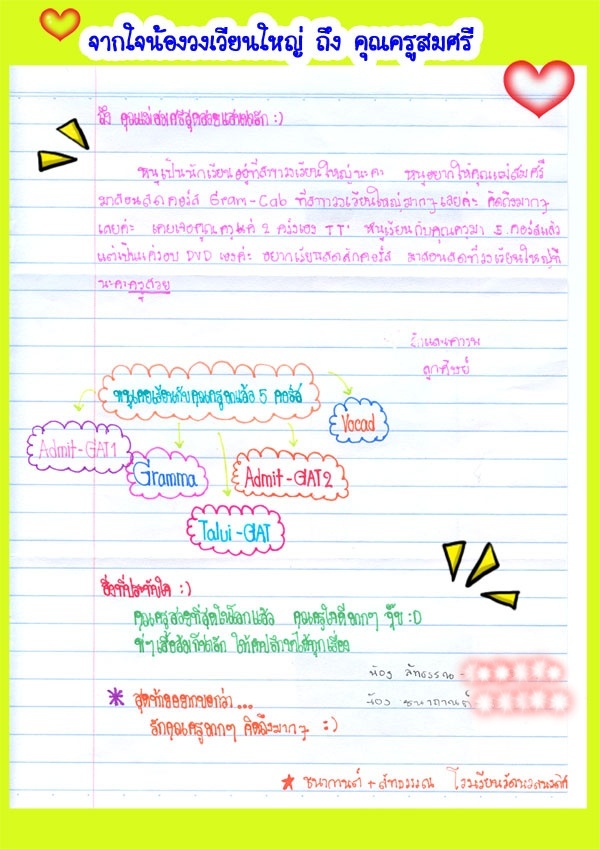 จากใจน้องวงเวียนใหญ่ ถึง คุณครูสมศรี
ถึง คุณแม่สมศรีสุดสวยแสนน่ารัก :)
หนูเป็นนักเรียนอยู่ที่สาขาวงเวียนใหญ่นะคะ หนูอยากให้คุณแม่สมศรี
มาสอนสดคอร์ส Gram-Cab ที่สาขาวงเวียนใหญ่มากๆเลยค่ะ คิดถึงมากๆ
เลยค่ะ เคยเจอคุณครูแค่ 2 ครั้งเอง TT' หนูเรียนกับคุณครูมา 5 คอร์สแล้ว
แต่เป็นแค่รอบ DVD เองค่ะ อยากเรียนสดสักคอร์ส มาสอนสดที่วงเวียนใหญ่ที
นะคะครูสวย
รักและเคารพ
ลูกศิษย์
หนูเคยเรียนกับคุณครูมาแล้ว 5 คอร์ส
Vocad
Admit-GAT1
Gramma
Admit-GAT2
Talui-GAT
สิ่งที่ประทับใจ :)
คุณครูสวยที่สุดในโลกแล้ว คุณครูใจดีมากๆ จุ๊บ :D
พี่ๆเสื้อส้มก็น่ารัก ให้คำปรึกษาได้ทุกเรื่อง
น้อง ลัทธวรรณ-
น้อง ชนากานต์-
* สุดท้ายอยากบอกว่า...
รักคุณครูมากๆ คิดถึงมากๆ :)
★ ชนากานต์ + ลัทธวรรณ โรงเรียนวัดนวลนรดิศ